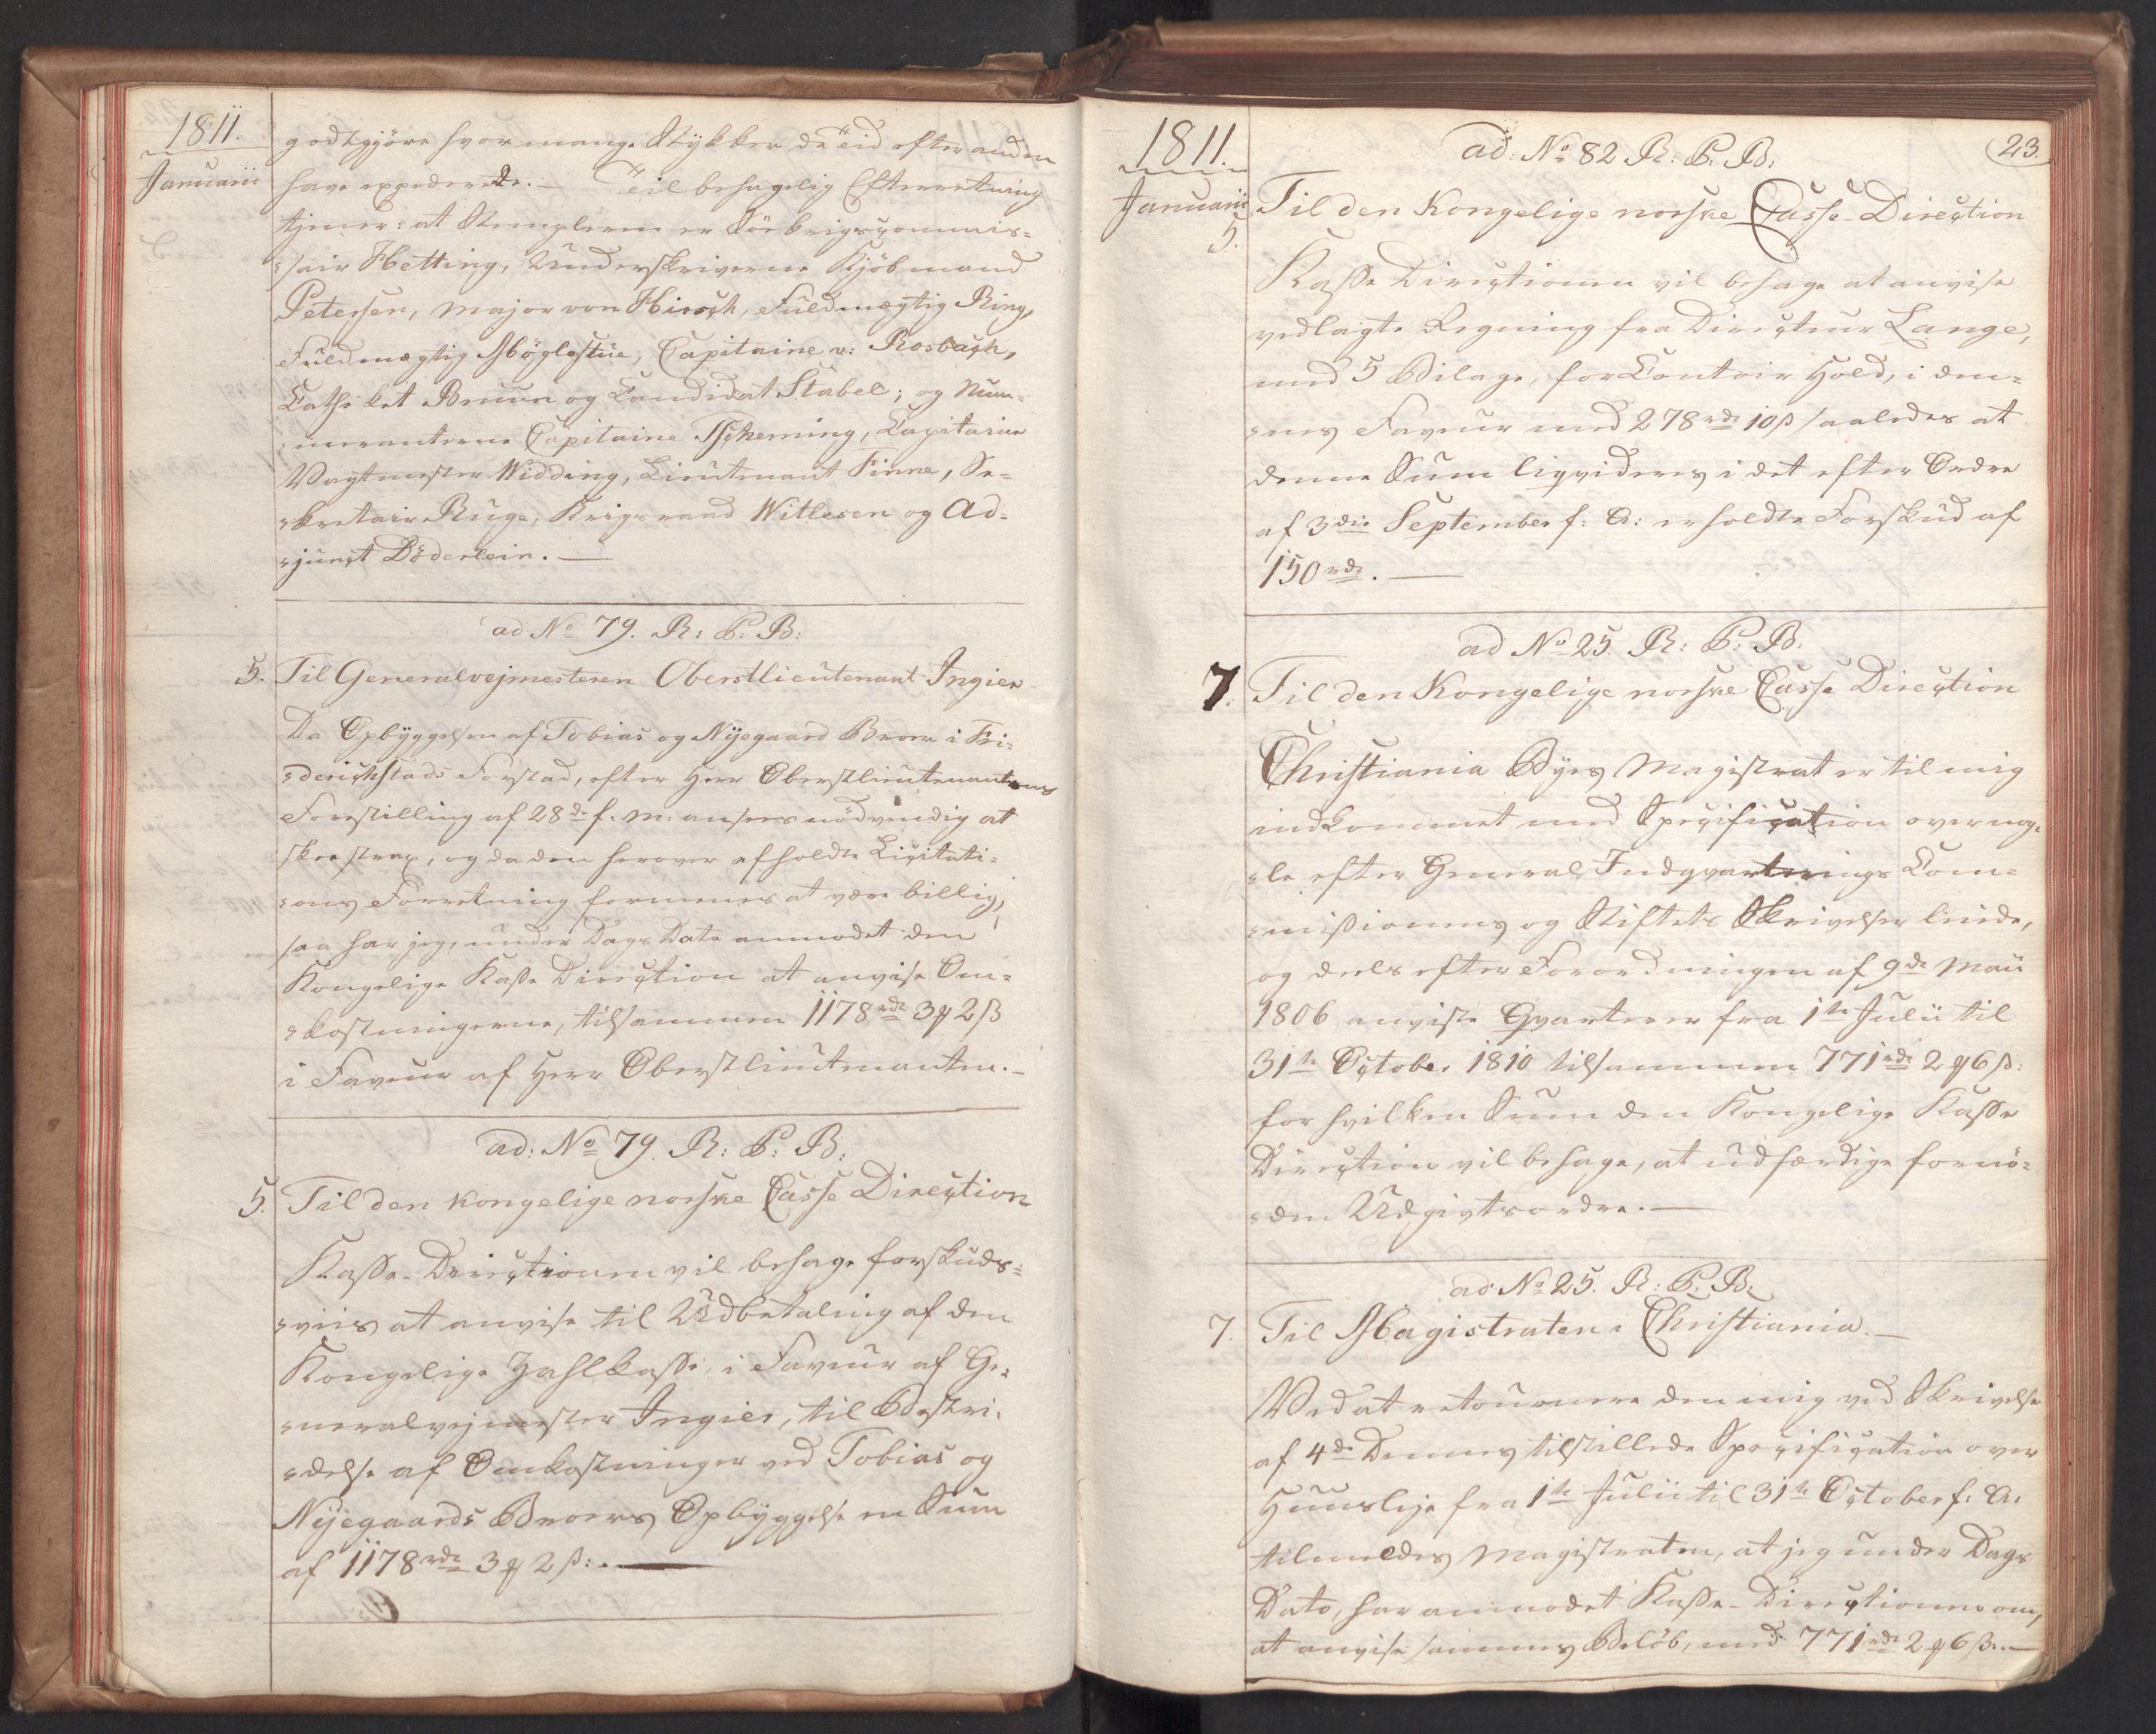 1811.
Januarii
godtgjöre hvor mange Stykker de Tiid efter anden
have expederede. — Til behagelig Efterretning
tjener: at Stemplerne er Söekrigscommis-
sair Hetting, Underskriverne Kjöbmand
Petersen, Major von Hirsch, Fuldmægtig Ring,
Fuldmægtig Möglestue, Capitaine v: Rosbach,
Cathiket Bruun og Candidat Stabel; og Num-
meranterne Capitaine Tscherning, Capitaine
Vagtmester Widding, Lieutenant Finne, Se-
kretair Ruge, Krigsraad Witlesen og Ad-
junct Döderlein. —
ad No 79. R: P: B:
5. Til Generalvejmesteren Oberstlieutenant Ingier
Da Opbyggelsen af Tobias og Nyegaard Broer i Fri-
derichstads Forstad, efter Herr Oberstlieutenantens
Forestilling af 28de f. M: ansees nödvendig at
skee strax, og da den herover afholdte Licitati-
ons Forretning formenes at være billig,
saa har jeg, under Dags Dato anmodet den
Kongelige Kasse Direction at anvise Om-
kostningerne, tilsammen 1178 rdr 3 ꝥ 2 ß
i Faveur af Herr Oberstlieutenanten. —
ad: No 79. R: P: B:
5. Til den kongelige norske Casse Direction
Kasse-Directionen vil behage forskuds-
viis at anvise til Udbetaling af den
Kongelige Zahlkasse, i Faveur af Ge-
neralvejmester Ingier, til Bestri-
delse af Omkostninger ved Tobias og
Nyegaards Broers Opbyggelse en Sum
af 1178 rdr 3 ꝥ 2 ß: . —
1811.
Januarii
23.
ad: No 82 R: P: B:
5. Til den Kongelige norske Casse-Direction
Kasse Directionen vil behage at anvise
vedlagte Regning fra Directeur Lange,
med 5 Bilage, for Contoir Hold, i den-
nes Faveur med 278 rdr 10 ß saaledes at
denne Sum liqvideres i det efter Ordre
af 3die September f: A: erholdte Forskud af
150 rdr. —
ad No 25. R: P: B:
7. Til den Kongelige norske Casse Direction
Christiania Byes Magistrat er til mig
indkommet med Specification over nog-
le efter General Indqvarterings Com-
missionens og Stiftets Skrivelser leiede,
og deels efter Forordningen af 9de Maii
1806 anviste Qvarterer fra 1te Julii til
31te October 1810 tilsammen 771 rdr 2 ꝥ 6 ß:
for hvilken Sum den Kongelige Kasse
Direction vil behage, at udfærdige fornö-
den Udgivtsordre. —
ad: No 25. R: P: B:
7. Til Magistraten i Christiania. —
Ved at retournere den mig ved Skrivelse
af 4de Dennes tilstillede Specification over
Huusleje fra 1te Julii til 31te October f: A:
tilmeldes Magistraten, at jeg under Dags
Dato, har anmodet Kasse-Directionen om,
at anvise sammes Belöb, med 771 rdr 2 ꝥ 6 ß. —